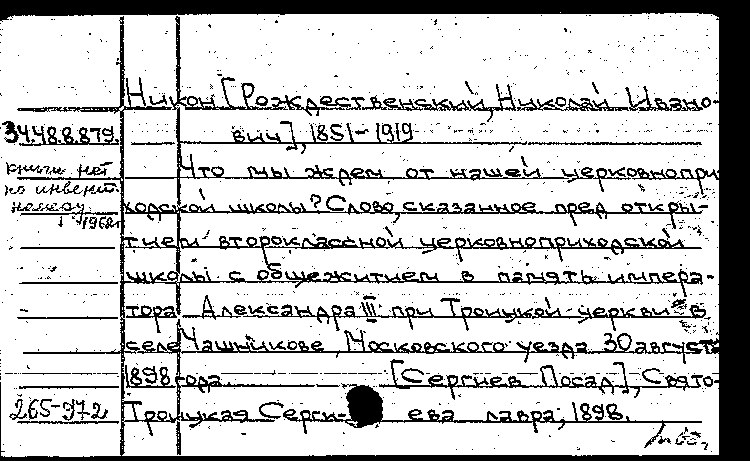 Никон [Рождественский, Николай Ивано-
34.48.8.879. вич], 1851-1919
книги нет Что мы ждем от нашей церковнопри
по инвент. номеру
1968г. ходской школы? Слово, сказанное пред откры-
тием второклассной церковноприходской
школы с общежитием в память импера-
тора Александра III при Троицкой церкви в
селе Чашникове, Московского уезда 30 августа
1898 года. [Сергиев Посад], Свято-
265-972 Троицкая Серги-ева лавра, 1898.